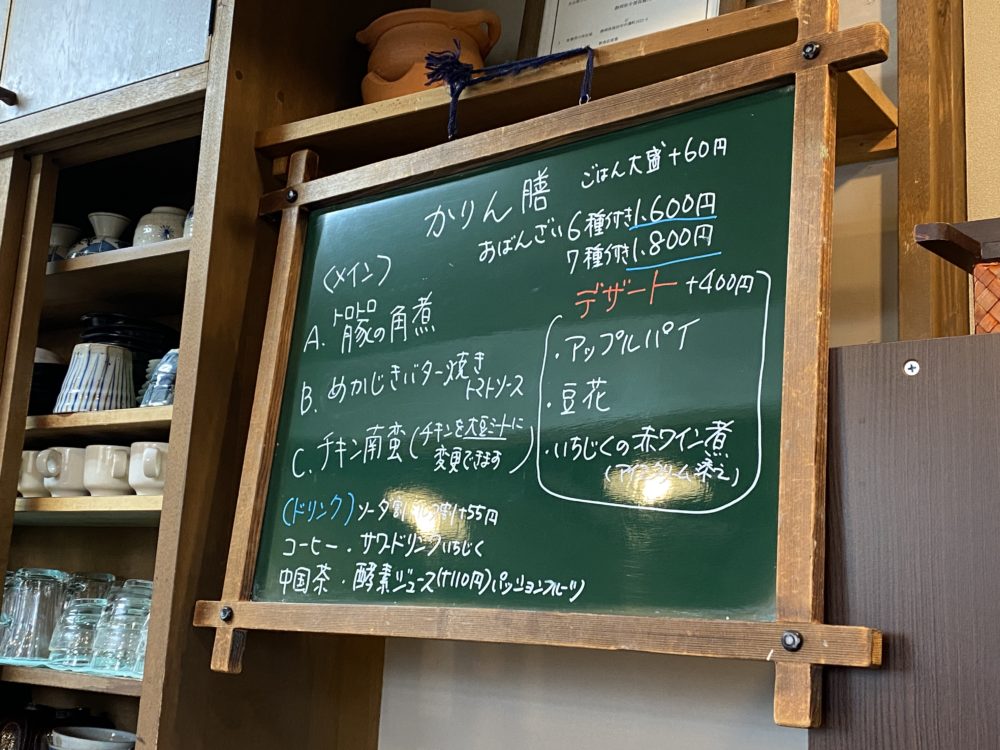 かりん膳
ごはん大盛+60円
おばんざい6種付き1,600円
7種付き1,800円
〈メイン〉
A. トロトロ豚の角煮
B. めかじきバター焼き
トマトソース
C. チキン南蛮(チキンを大豆ミートに
変更できます)
デザート +400円
・アップルパイ
・豆花
・いちじくの赤ワイン煮
(アイスクリーム添え)
(ドリンク)ソーダ割 +55円
コーヒー・サワードリンクいちじく
中国茶・酵素ジュース(+110円)パッションフルーツ